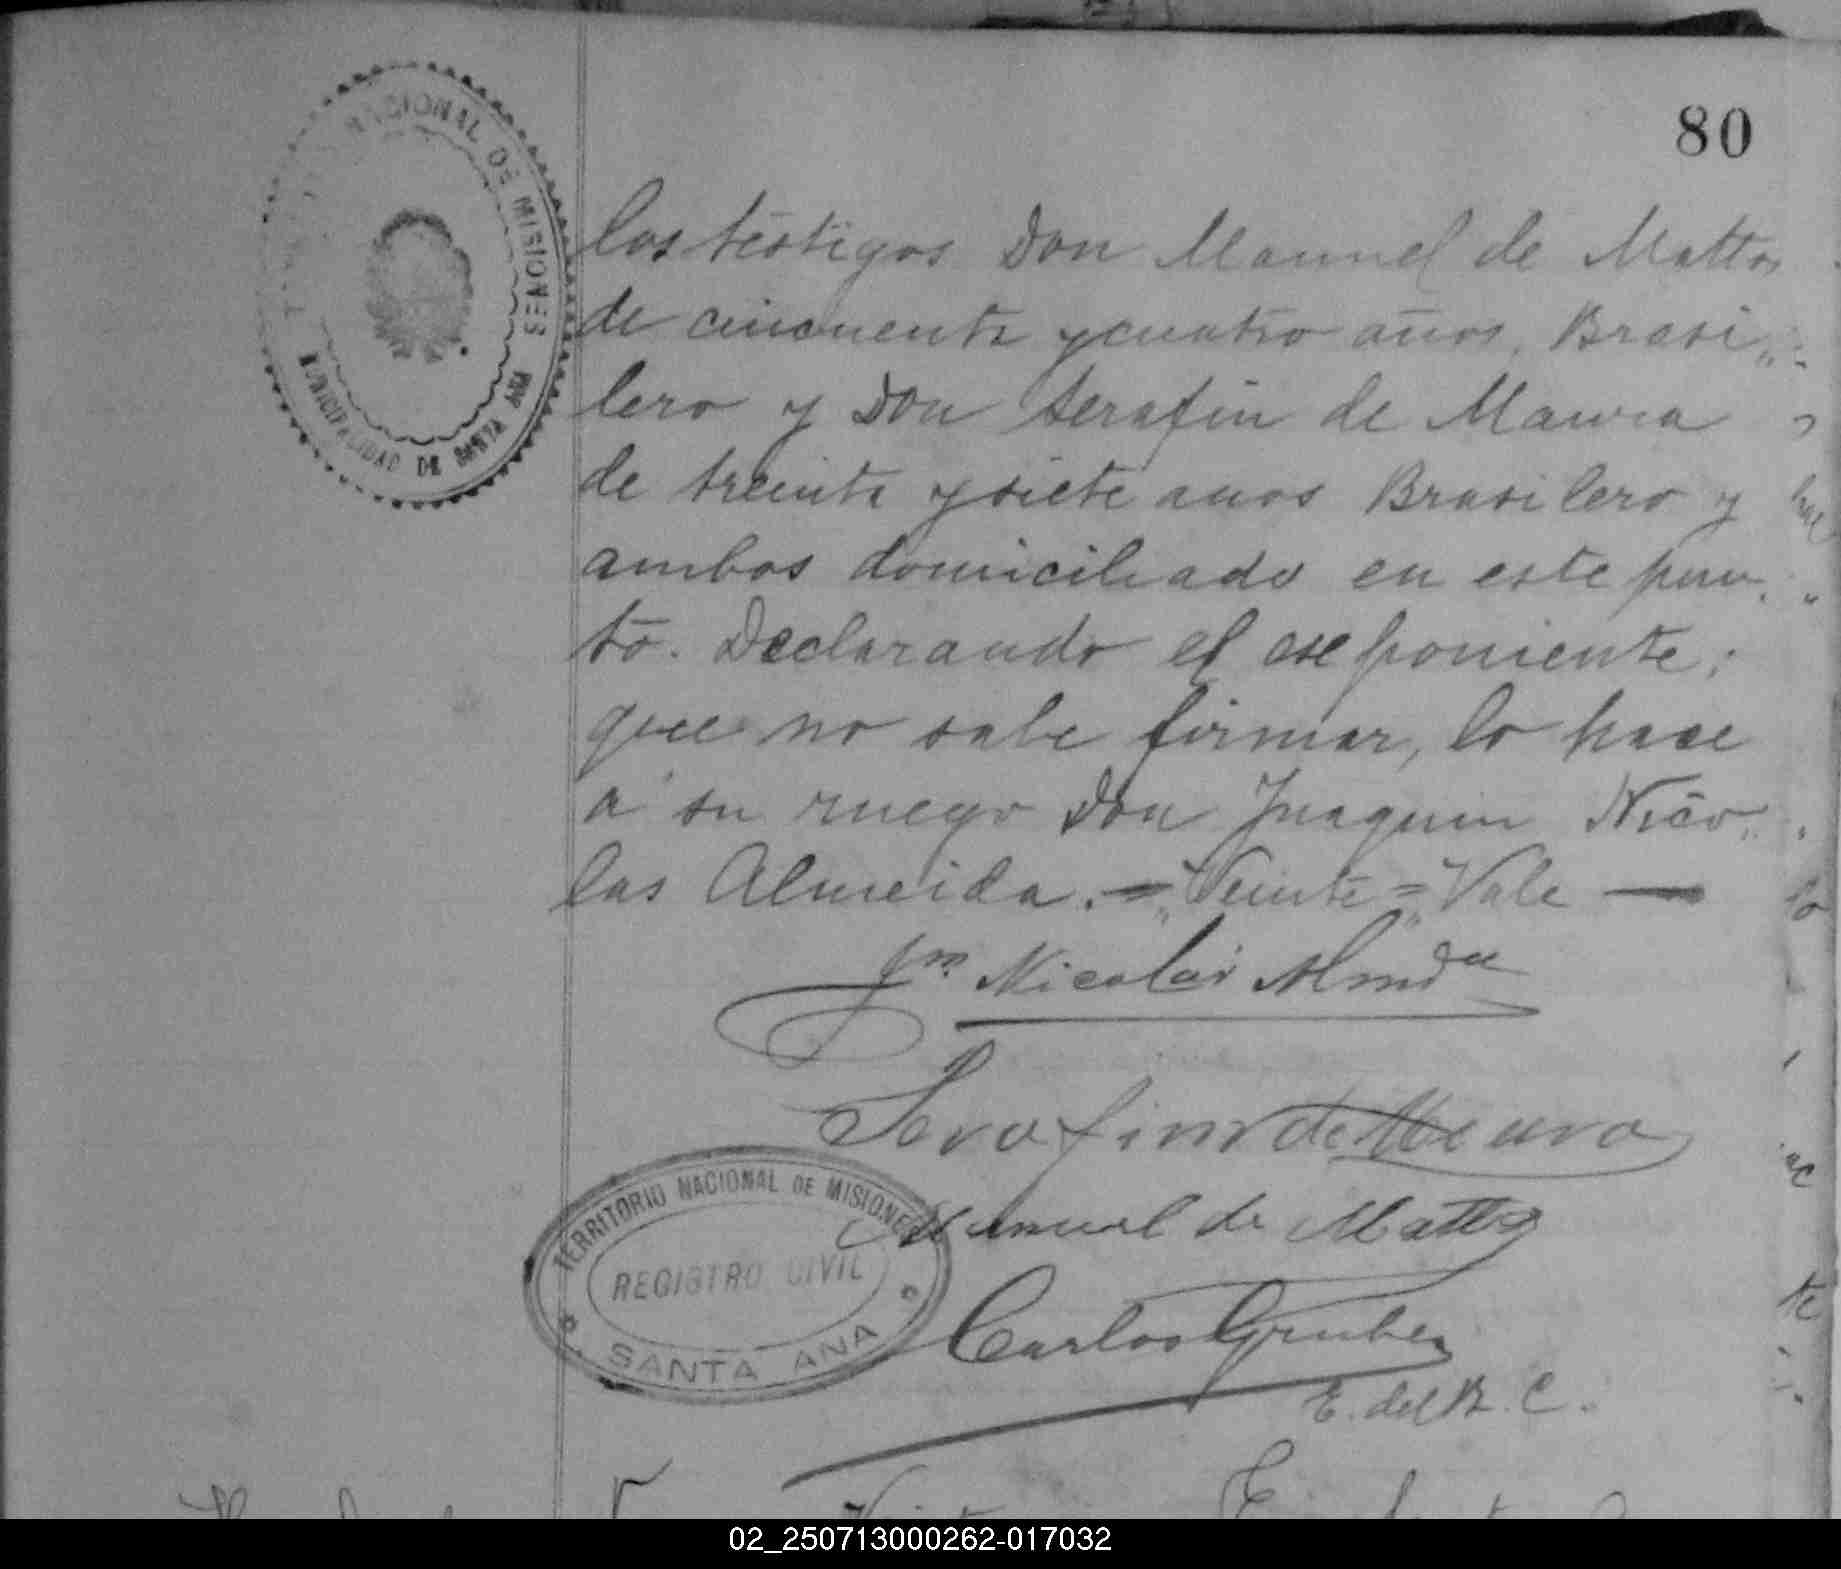 80
NACIONAL DE MISIONES
MUNICIPALIDAD DE SANTA ANA
los testigos Don Manuel de Mattos
de cincuenta y cuatro años, Brasi„
lero y Don Serafin de Maura
de treinta y siete anos Brasilero y
ambos domiciliado en este pun„
to. Declarando el eseponiente;
que no sabe firmar, lo hase
á su ruego Don Juaquin Nico„
las Almeida.="Veinte"=Vale —
Jm Nicolas Almda
Serafim de Moura
Manuel de Mattos
TERRITORIO NACIONAL DE MISIONES
REGISTRO CIVIL
SANTA ANA
Carlos Gruber
E. del R. C.
02_250713000262-017032